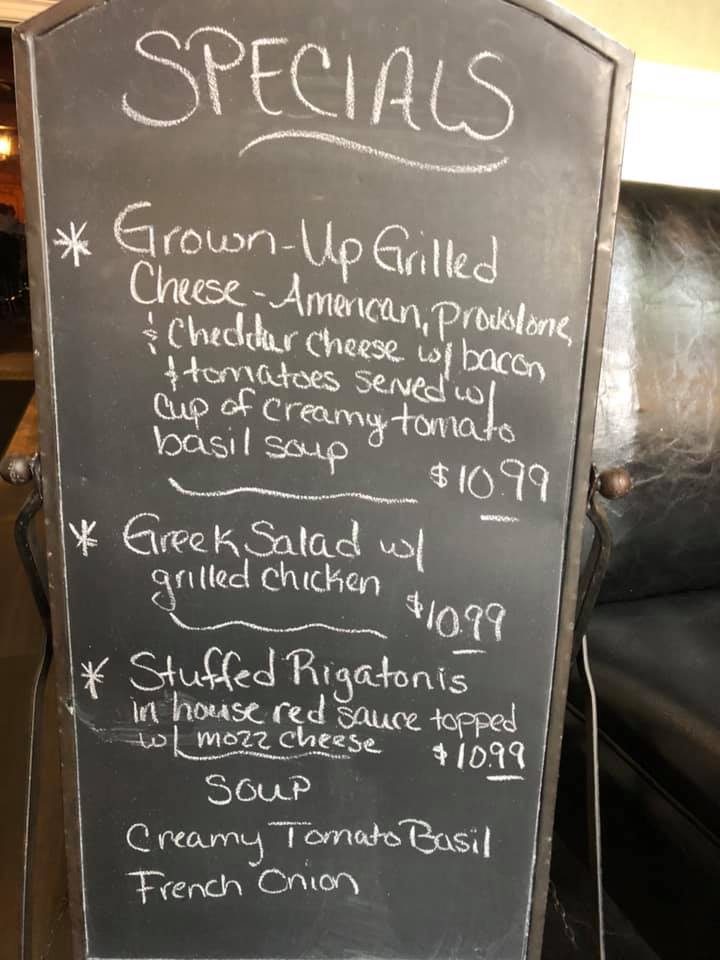 SPECIALS
* Grown-Up Grilled
Cheese - American, Provolone,
& Cheddar cheese w/ bacon
& tomatoes served w/
cup of creamy tomato
basil soup
$10.99
* Greek Salad w/
grilled chicken
$10.99
* Stuffed Rigatonis
in house red sauce topped
w/ mozz cheese $10.99
SOUP
Creamy Tomato Basil
French Onion